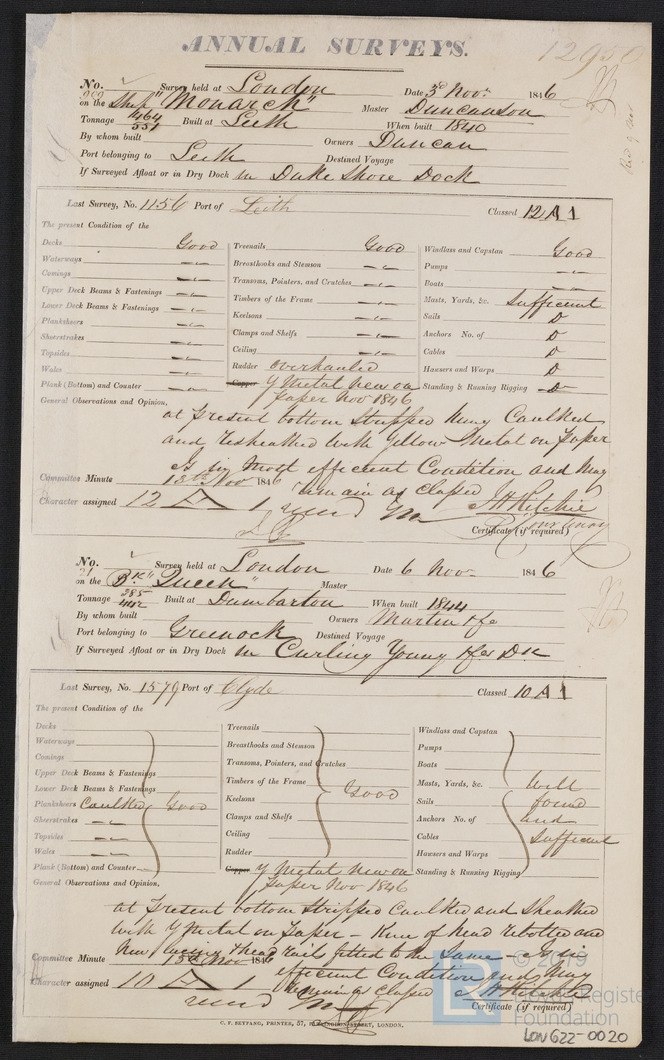 ANNUAL SURVEYS.
12950
No. 909 Survey held at London Date 3d Novr 1846
on the Ship "Monarch" Master Duncanson
Tonnage 1464 551 Built at Leith When built 1840
By whom built Owners Duncan
Port belonging to Leith Destined Voyage
If Surveyed Afloat or in Dry Dock in Duke Shore Dock
Last Survey, No. 1156 Port of Leith Classed 12 A 1
The present Condition of the
Decks Good Treenails Good Windlass and Capstan Good
Waterways Breasthooks and Stemson Pumps
Comings Transoms, Pointers, and Crutches Boats
Upper Deck Beams & Fastenings Timbers of the Frame Masts, Yards, &c. Sufficient
Lower Deck Beams & Fastenings Keelsons Sails Do
Planksheers Clamps and Shelfs Anchors No. of Do
Sheerstrakes Ceiling Cables Do
Topsides Rudder overhauled Hawsers and Warps Do
Wales
Plank (Bottom) and Counter Copper Y Metal new on Standing & Running Rigging Do
paper Nov 1846
General Observations and Opinion,
at present bottom stripped hung Caulked
and resheathed with Yellow Metal on paper
Is in most efficient Condition and may
Committee Minute 13th Nov 1846
remain as classed
Character assigned 12 A 1 J H Ritchie
Certificate (if required)
No. 21 Survey held at London Date 6 Novr 1846
on the Bk "Queen" Master
Tonnage 285 Built at Dumbarton When built 1844
By whom built Owners Martin & Co
Port belonging to Greenock Destined Voyage
If Surveyed Afloat or in Dry Dock in Curling Young & Co Dk
Last Survey, No. 1579 Port of Clyde Classed 10 A 1
The present Condition of the
Decks Treenails Windlass and Capstan
Waterways Breasthooks and Stemson Pumps
Comings Transoms, Pointers, and Crutches Boats
Upper Deck Beams & Fastenings Timbers of the Frame Masts, Yards, &c. Well
Lower Deck Beams & Fastenings Keelsons Good Sails found
Planksheers Caulked Good Clamps and Shelfs Anchors No. of and
Sheerstrakes Ceiling Cables Sufficient
Topsides
Wales Rudder Hawsers and Warps
Plank (Bottom) and Counter Copper Y Metal new on Standing & Running Rigging
paper Nov 1846
General Observations and Opinion,
at present bottom stripped Caulked and sheathed
with Y Metal on paper - Knee of head rebolted and
new lacing & head rails fitted to the same - Is in
Committee Minute 13th Nov 1846
efficient Condition and may
Character assigned 10 A 1 remain as classed J H Ritchie
Certificate (if required)
C. F. SEYFANG, PRINTER, 57, STREET, LONDON.
© 2019
Lloyd's Register
Foundation
LON622-0020